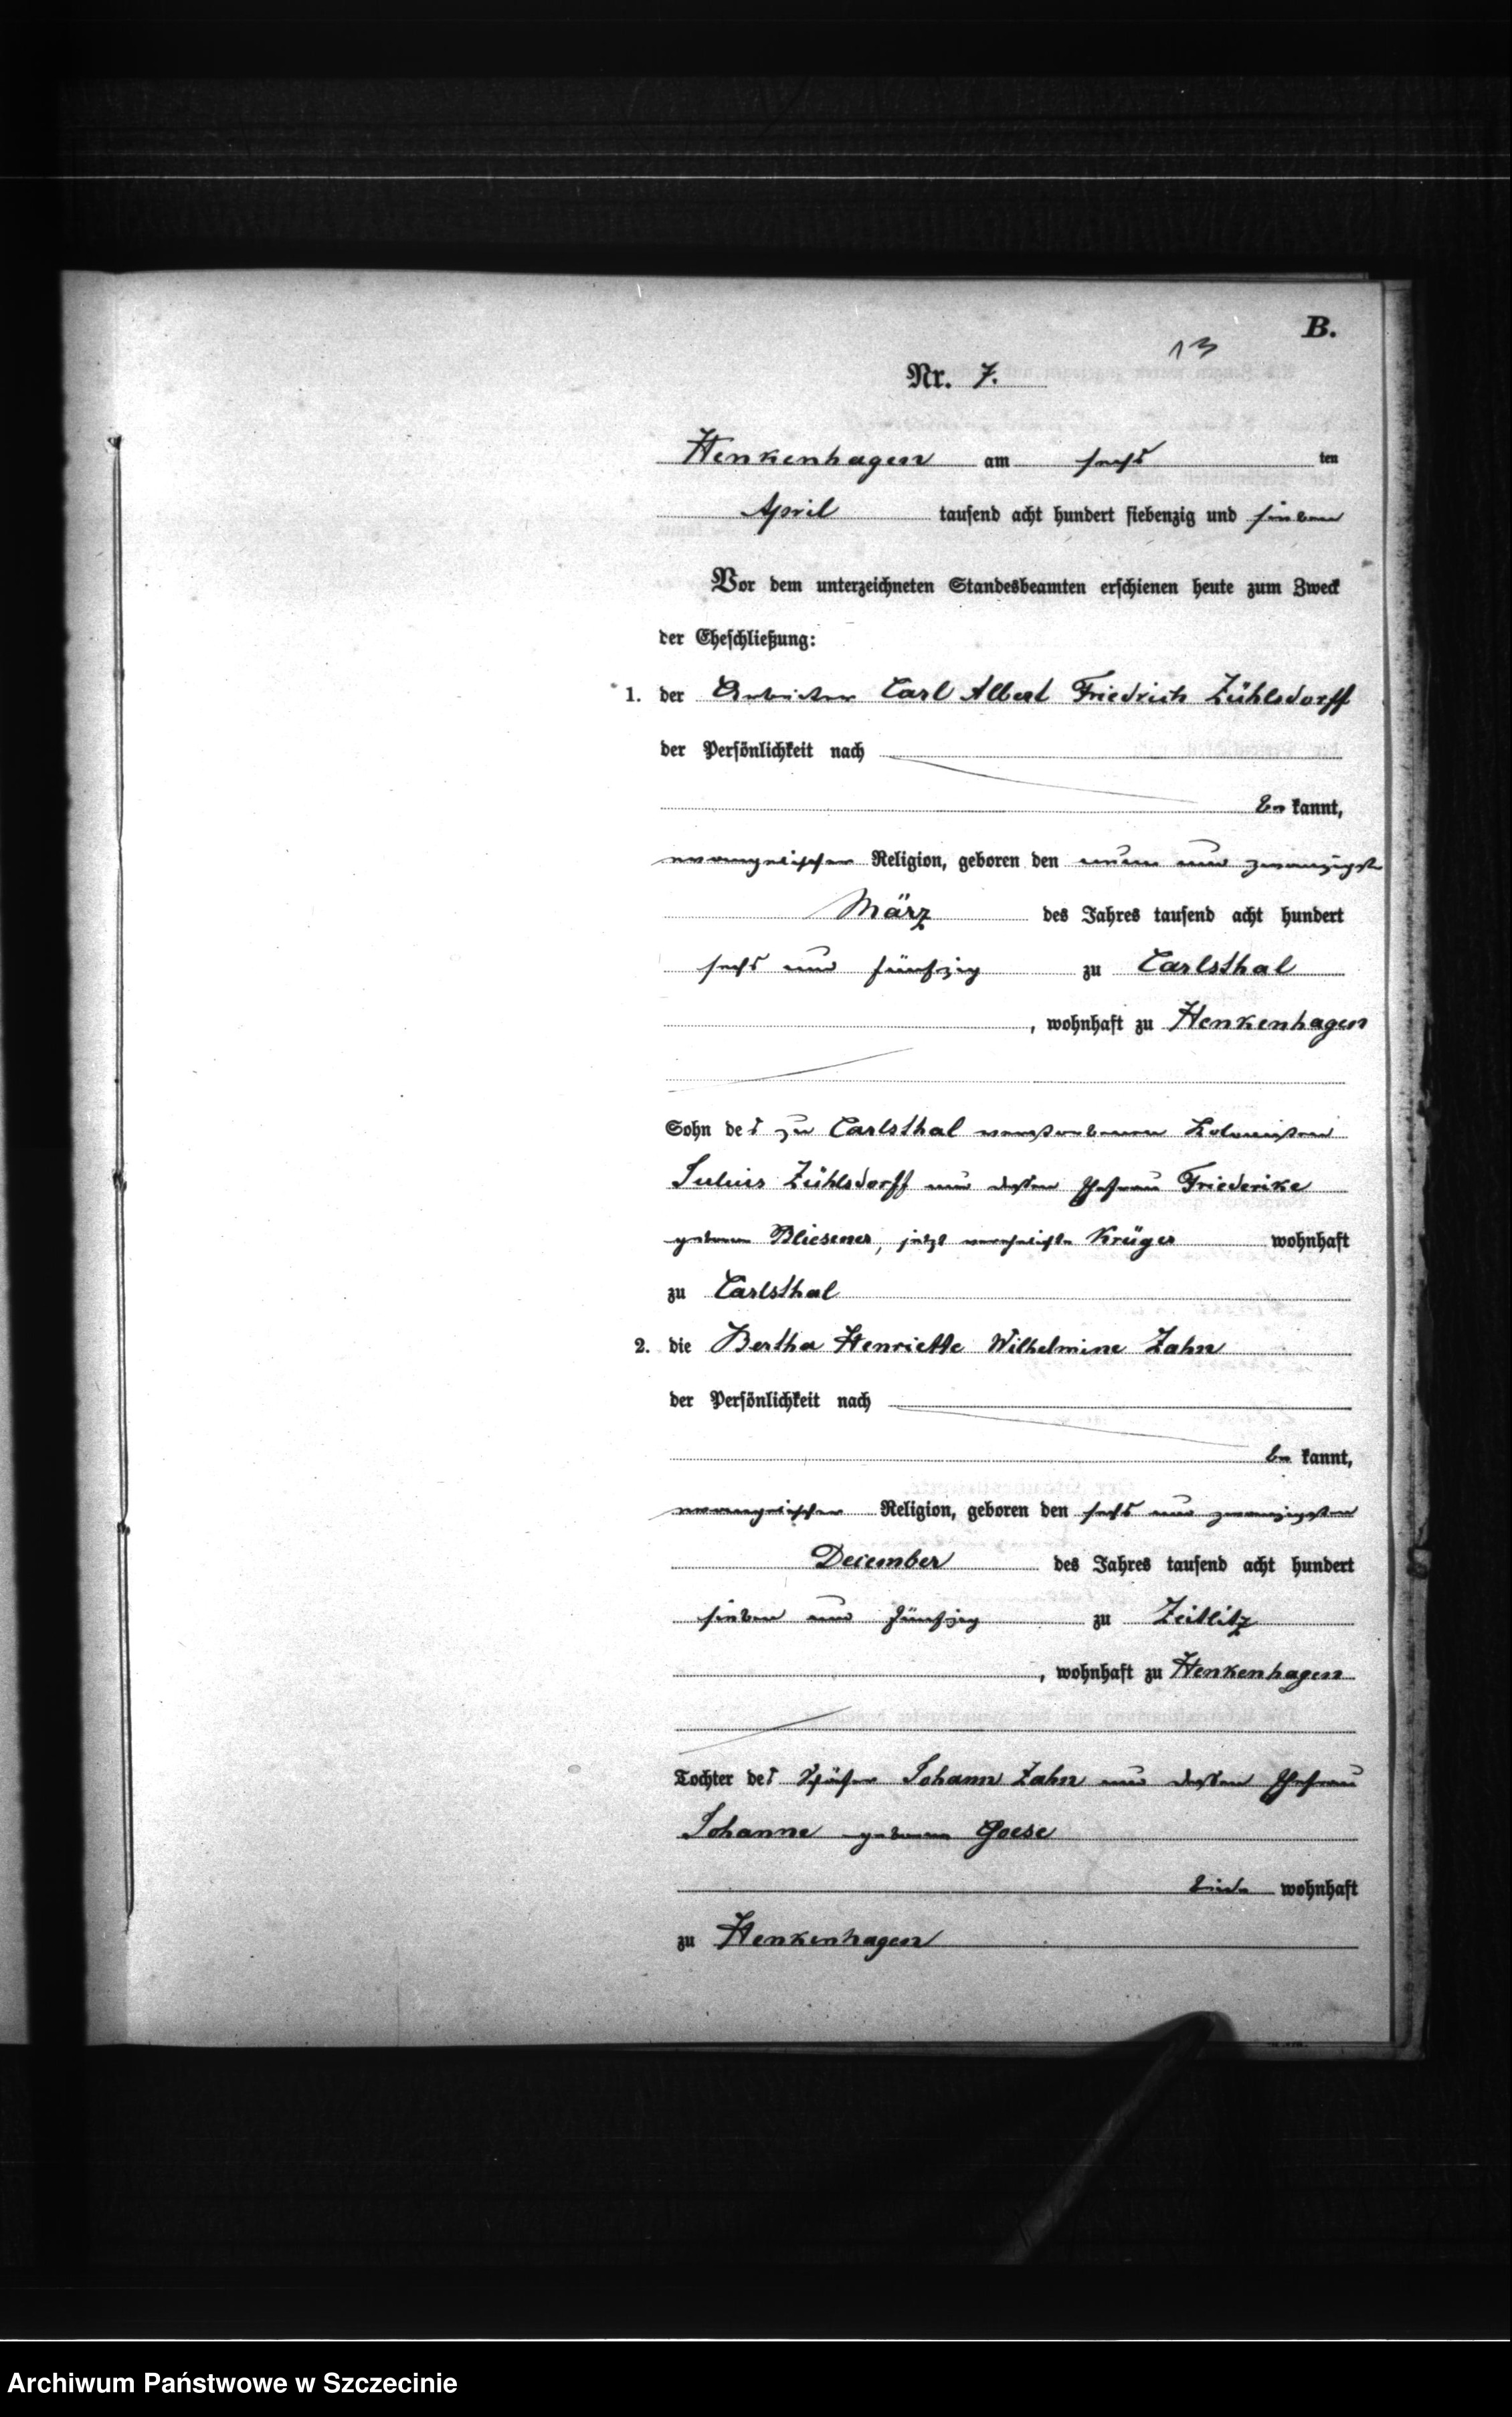 B.
13
Nr. 7.
Henkenhagen am sechs ten
April tausend acht hundert siebenzig und sieben
Vor dem unterzeichneten Standesbeamten erschienen heute zum Zweck
der Eheschließung:
1. der Arbeiter Carl Albert Friedrich Zühlsdorff
der Persönlichkeit nach
be kannt,
evangelischer Religion, geboren den neun und zwanzigsten
März des Jahres tausend acht hundert
sechs und fünfzig zu Carlsthal
, wohnhaft zu Henkenhagen
Sohn des zu Carlsthal verstorbenen Kolonisten
Julius Zühlsdorff und dessen Ehefrau Friederike
geborene Bliesener, jetzt verehelichte Krüger wohnhaft
zu Carlsthal
2. die Bertha Henriette Wilhelmine Zahn
der Persönlichkeit nach
be kannt,
evangelischer Religion, geboren den sechs und zwanzigsten
December des Jahres tausend acht hundert
sieben und fünfzig zu Zeitlitz
, wohnhaft zu Henkenhagen
Tochter des Schäfer Johann Zahn und dessen Ehefrau
Johanne geborene Goese
beide wohnhaft
zu Henkenhagen
Archiwum Państwowe w Szczecinie